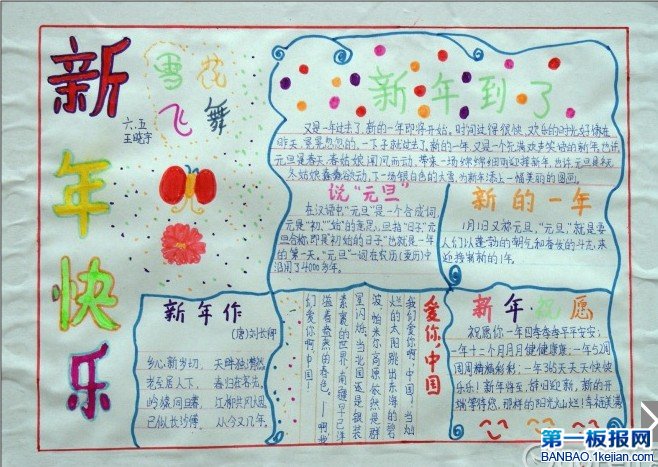 新年快乐
雪花
飞舞
六.五
新年到了
又是一年过去了,新的一年即将开始。时间过得很快,欢乐的时光好像在
昨天,
一下子就过去了。新的一年,又是一个充满欢声笑语的新年。也许,
元旦是春天,春姑娘闻风而动,带来一场绵绵细雨迎接新年。也许,元旦是冬天,
冬姑娘蠢蠢欲动,下一场银白色的大雪,为新年添上一幅美丽的图画。
说“元旦”
在汉语中“元旦”是一个合成词,
元是“初”“始”的意思,旦指“日子”元
旦合称,即是初始的日子”也就是一年
的第一天。“元旦”一词在农历(夏历)中
沿用了4000多年。
新的一年
1月1日又称元旦,“元旦”就是要
人们以蓬勃的朝气和奋发的斗志,来
迎接崭新的1年。
新年作
(唐)刘长卿
乡心新岁切,天畔独潸然
老至居人下,春归在客先。
岭猿同旦暮,江柳共风烟
已似长沙傅,从今又几年。
爱你,中国
我们爱你啊,中国!当灿
烂的太阳跳出东海的碧
波,帕米尔高原依然是群
星闪烁,当北国还是银装
素裹的世界,南疆早已洋
溢着盎然的春色。——啊,我
们爱你啊,中国!
新年祝愿
祝愿你一年四季春春平平安安;
一年十二个月月月健健康康;一年52周
周周精精彩彩;一年365天天天快快乐
乐!新年将至,辞旧迎新,新的开
端等待您,那样的阳光灿烂!幸福美满
第一板报网
BANBAO.1kejian.com